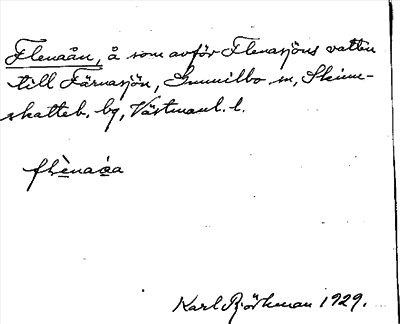 Flenaån, å som avför Flenasjöns vatten
till Färnasjön, Gunnilbo sn, Skinn-
skatteb. bg, Västmanl. l.
flènaåa
Karl Björkman 1929.